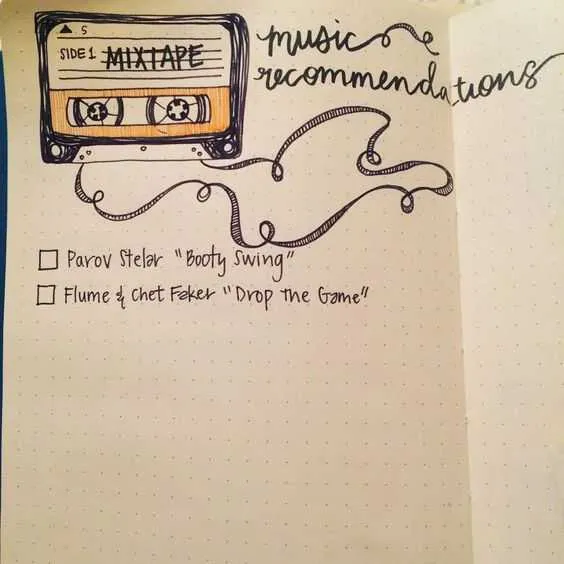 ▲ S
SIDE 1 MIXTAPE
music
recommendations
Parov Stelar "Booty Swing"
Flume & Chet Faker "Drop The Game"